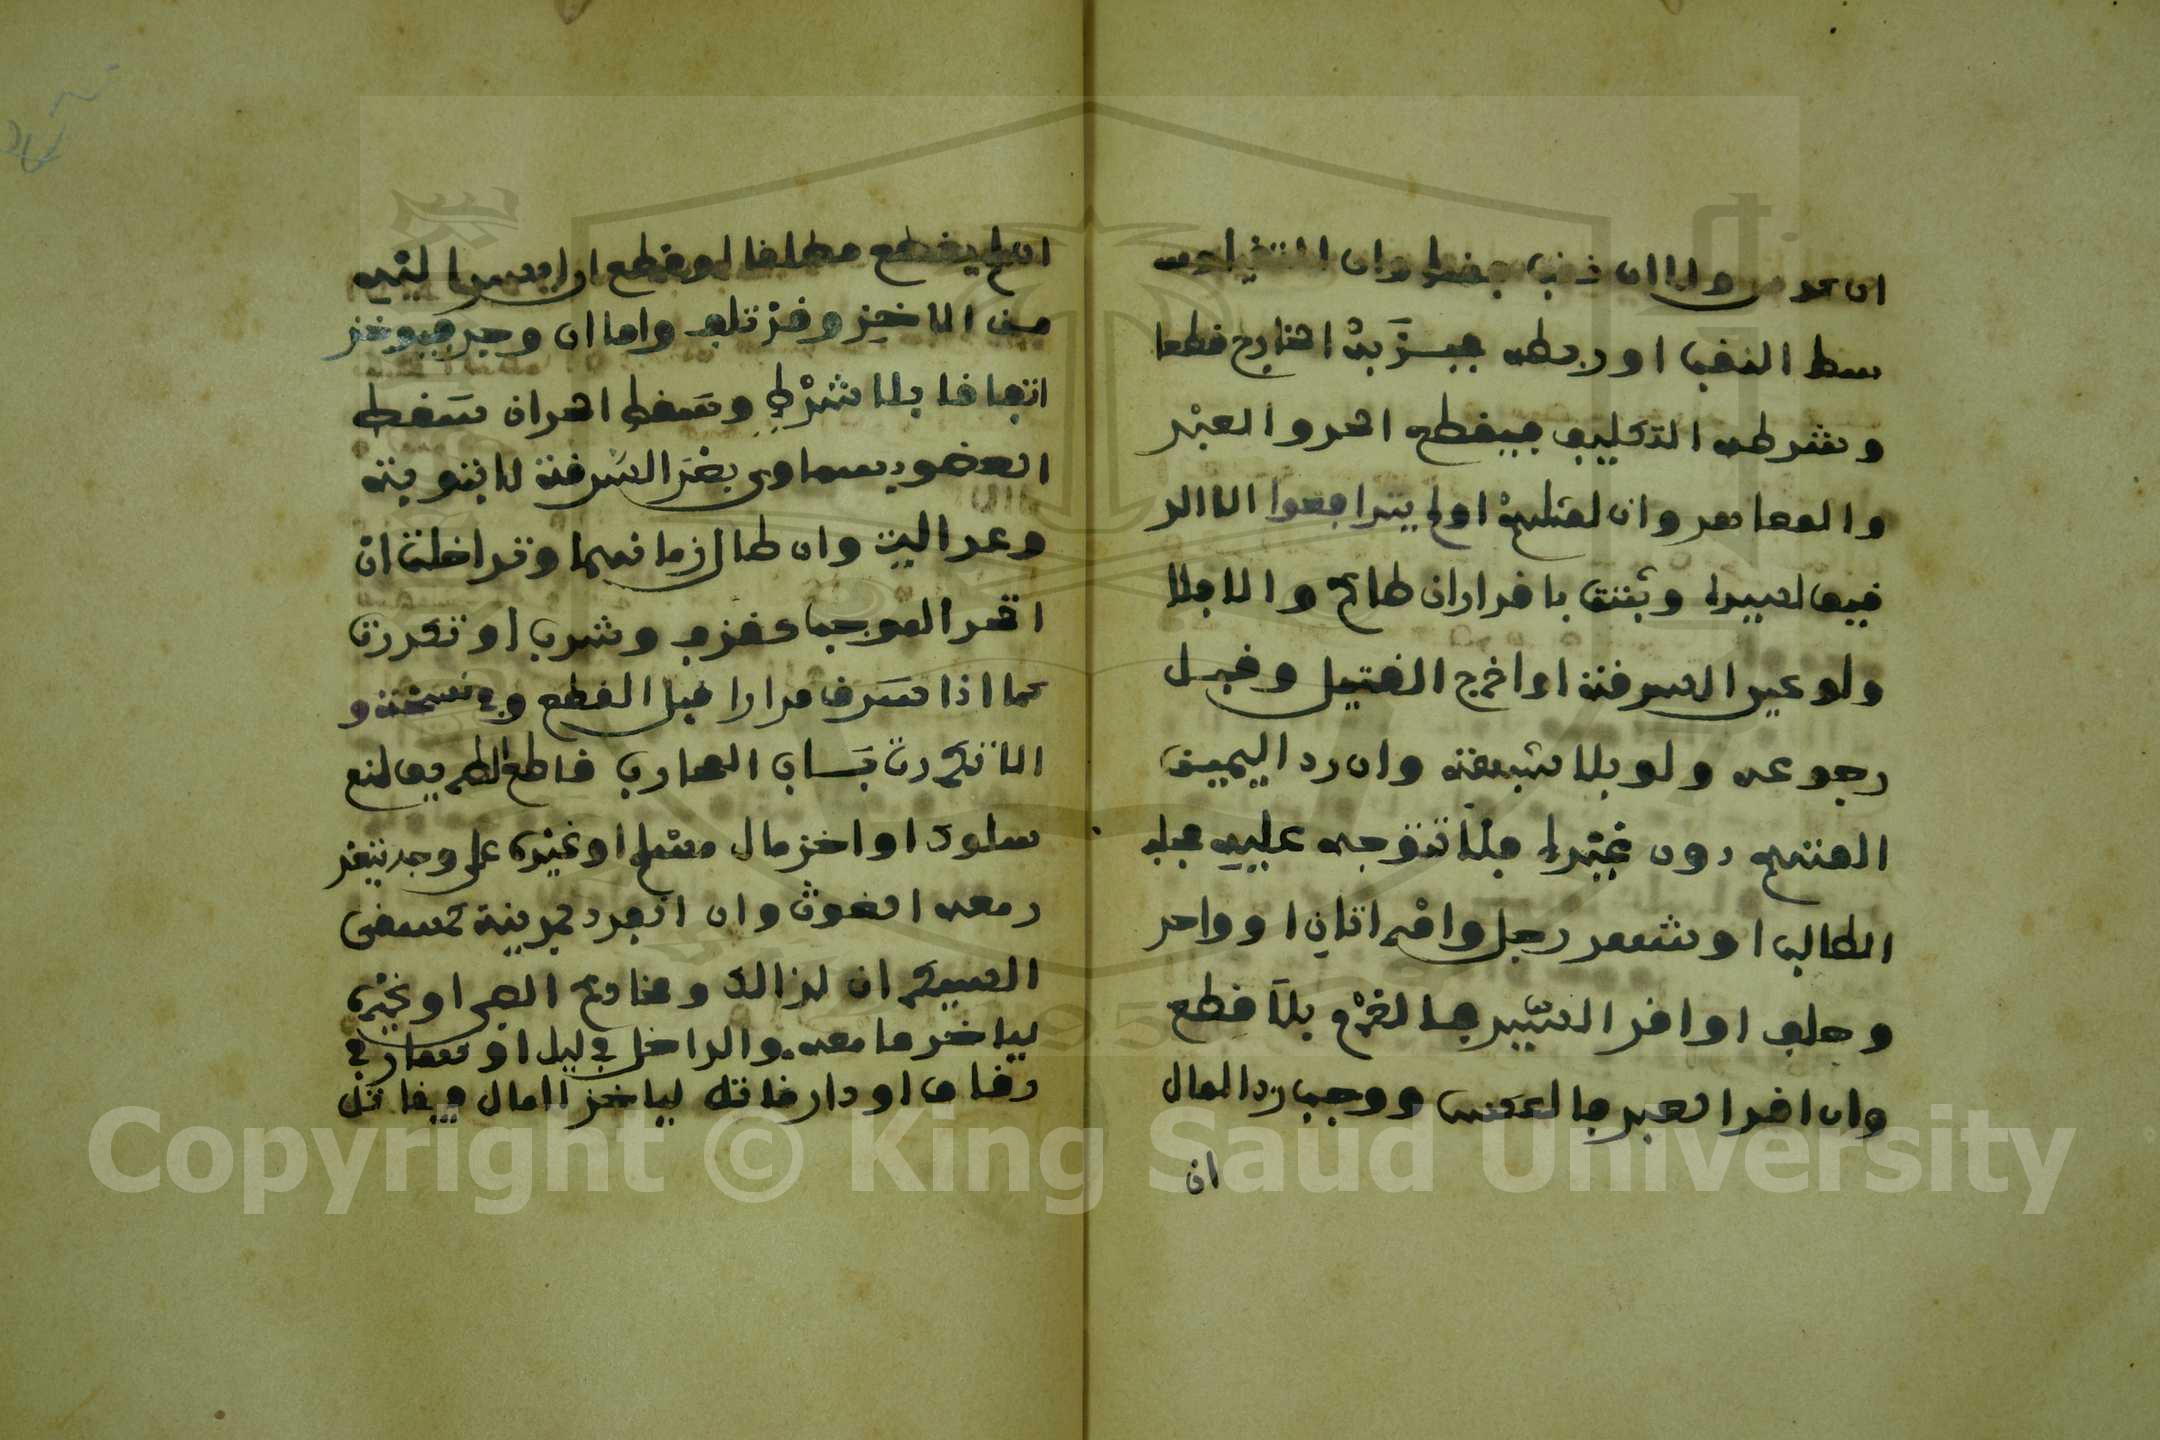 ولا ان نقب فقط وان التقيا وسط
سط النقب او ربطه فجبذه الخارج قطعا
وشرطه التكليف فيقطع الحر والعبد
والمعاهد وان لمثلهم او لم يترافعوا الا الر
قيق لسيده وثبتت باقرار ان طاع والا فلا
ولو عين السرقة او اخرج القتيل وقبل
رجوعه ولو بلا شبهة وان رد اليمين
المتهم دون غيره فلا تتوجه عليه فحلف
الطالب او شهد رجل وامراتان او واحد
وحلف او اقر السيد فالغرم بلا قطع
وان اقر العبد فالعكس ووجب رد المال
ان
ان لم يقطع مطلقا او قطع ان ايسر اليه
من الاخذ وقد تلف واما ان وجد فيوخذ
اتفاقا بلا شرط وسقط الحد ان سقط
العضو بسماوي بعد السرقة لا بتوبة
وعدالة وان طال زمانهما وتداخلت ان
اتحد الموجب كقذف وشرب او تكررت
كما اذا سرق مرارا قبل القطع وفي نسخة و
الا تكررت باب المحارب قاطع الطريق لمنع
سلوك او اخذ مال مسلم او غيره على وجه يتعذر
معه الغوث وان انفرد بمدينة كمسقي
السيكران لذالك ومخادع الصبي او غيره
لياخذ ما معه والداخل في ليل او نهار في
زقاق او دار قاتل لياخذ المال فيقاتل
Copyright © King Saud University